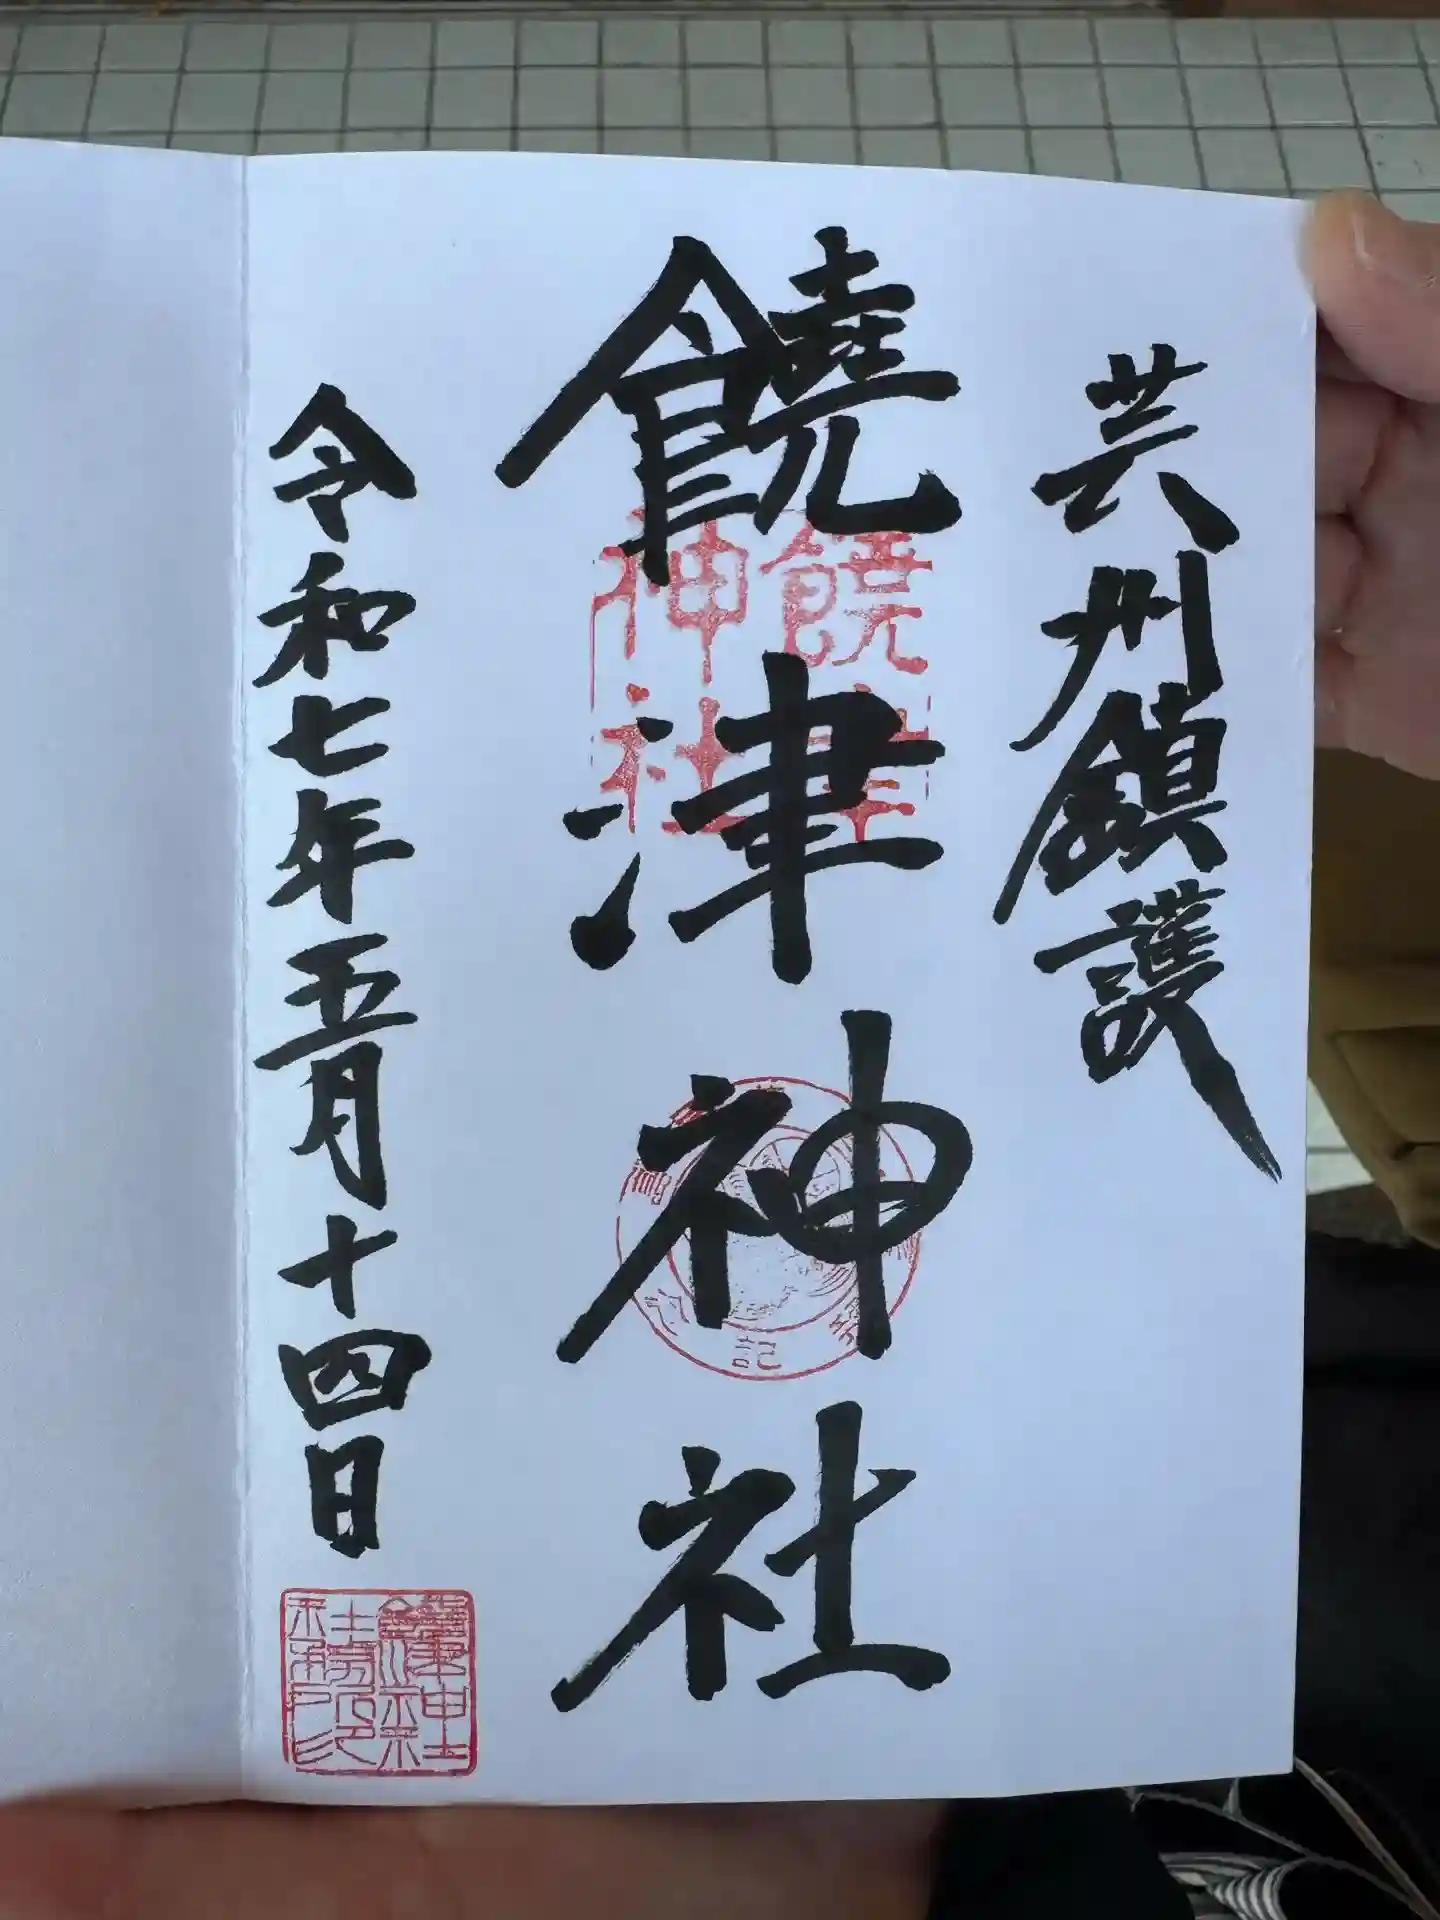 芸州鎮護
饒津神社
令和七年五月十四日
饒津
神社